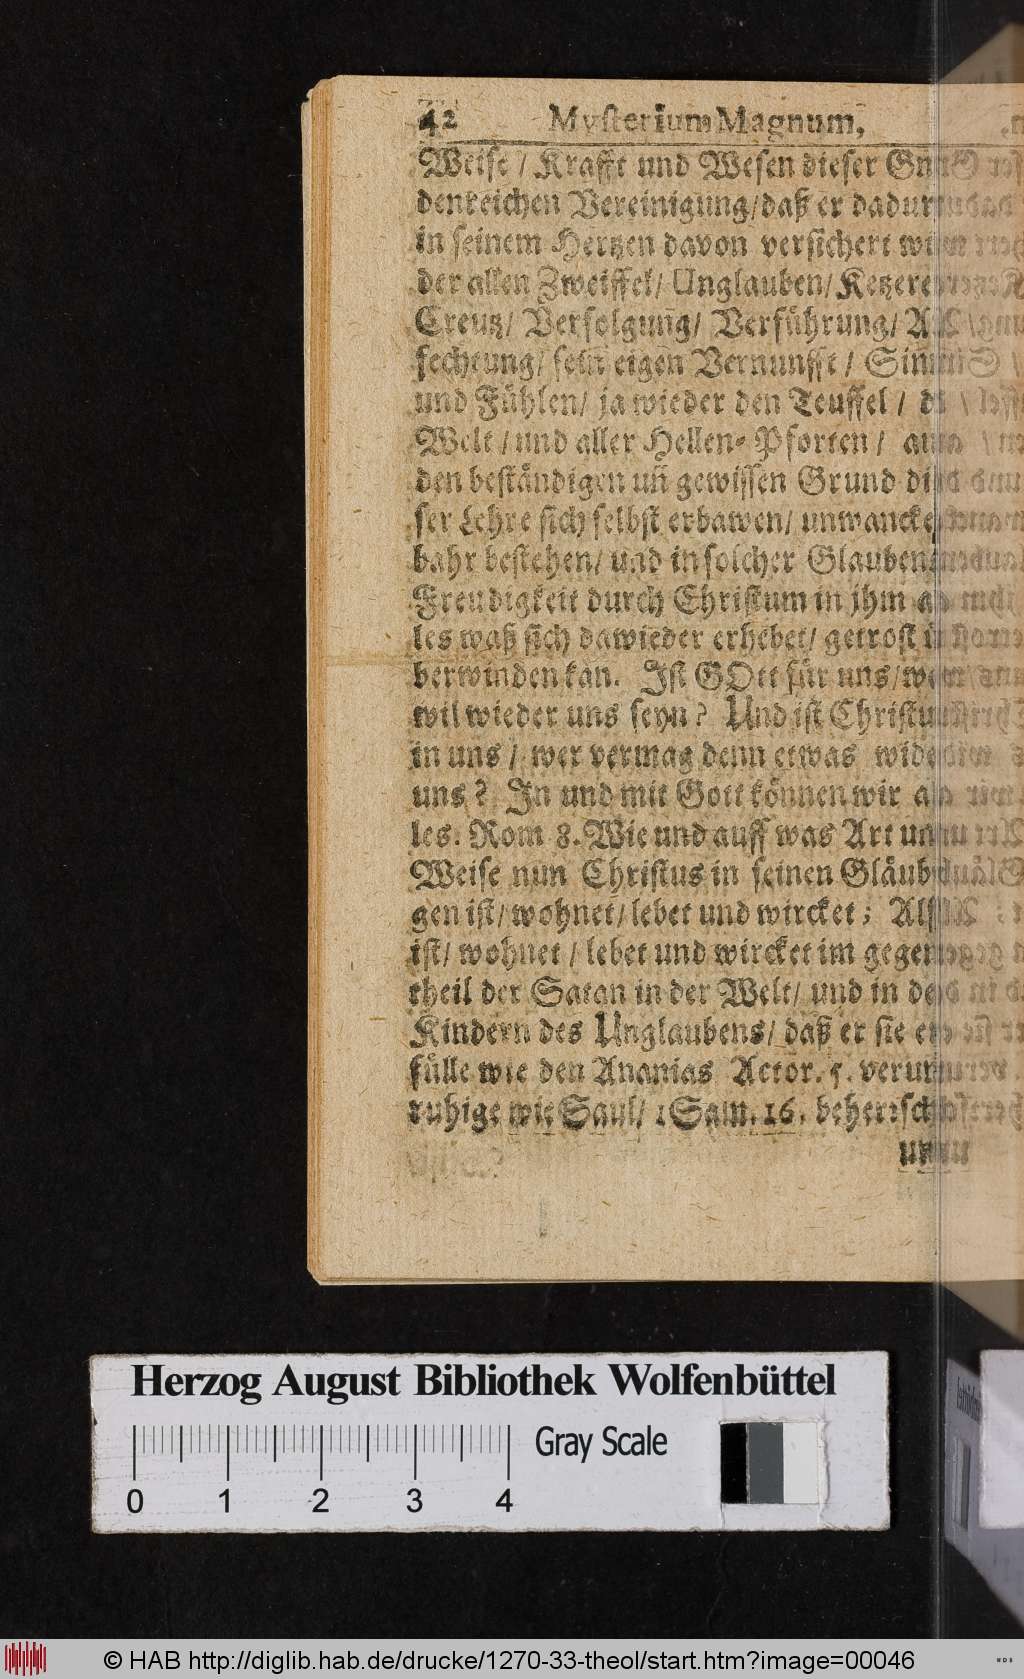 42 Mysterium Magnum,
Weise / Krafft und Wesen dieser Gna
denreichen Vereinigung/daß er dadur
in seinem Hertzen davon versichert
der allen Zweiffel/ Unglauben/ Ketzere
Creutz/ Verfolgung/ Verführung/
fechtung/ sein eigen Vernunfft /
und Fühlen/ ja wieder den Teuffel /
Welt / und aller Hellen- Pforten /
den beständigen uñ gewissen Grund
ser Lehre sich selbst erbawen/ unwancke
bahr bestehen/ und in solcher Glauben
Freudigkeit durch Christum in jhm
les waß sich dawieder erhebet/ getrost
berwinden kan. Ist GOtt für uns/wer
wil wieder uns seyn? Und ist Christu
in uns / wer vermag denn etwas wide
uns? In und mit Gott können wir
les. Rom 8. Wie und auff was Art
Weise nun Christus in seinen Gläub
gen ist/ wohnet/ lebet und wircket; Also
ist/ wohnet / lebet und wircket im gegen
theil der Satan in der Welt/ und in
Kindern des Unglaubens/ daß er sie
fülle wie den Ananias Actor. 5. verun
ruhige wie Saul/ 1 Sam. 16. beherrsch
Herzog August Bibliothek Wolfenbüttel
Gray Scale
0 1 2 3 4
© HAB http://diglib.hab.de/drucke/1270-33-theol/start.htm?image=00046